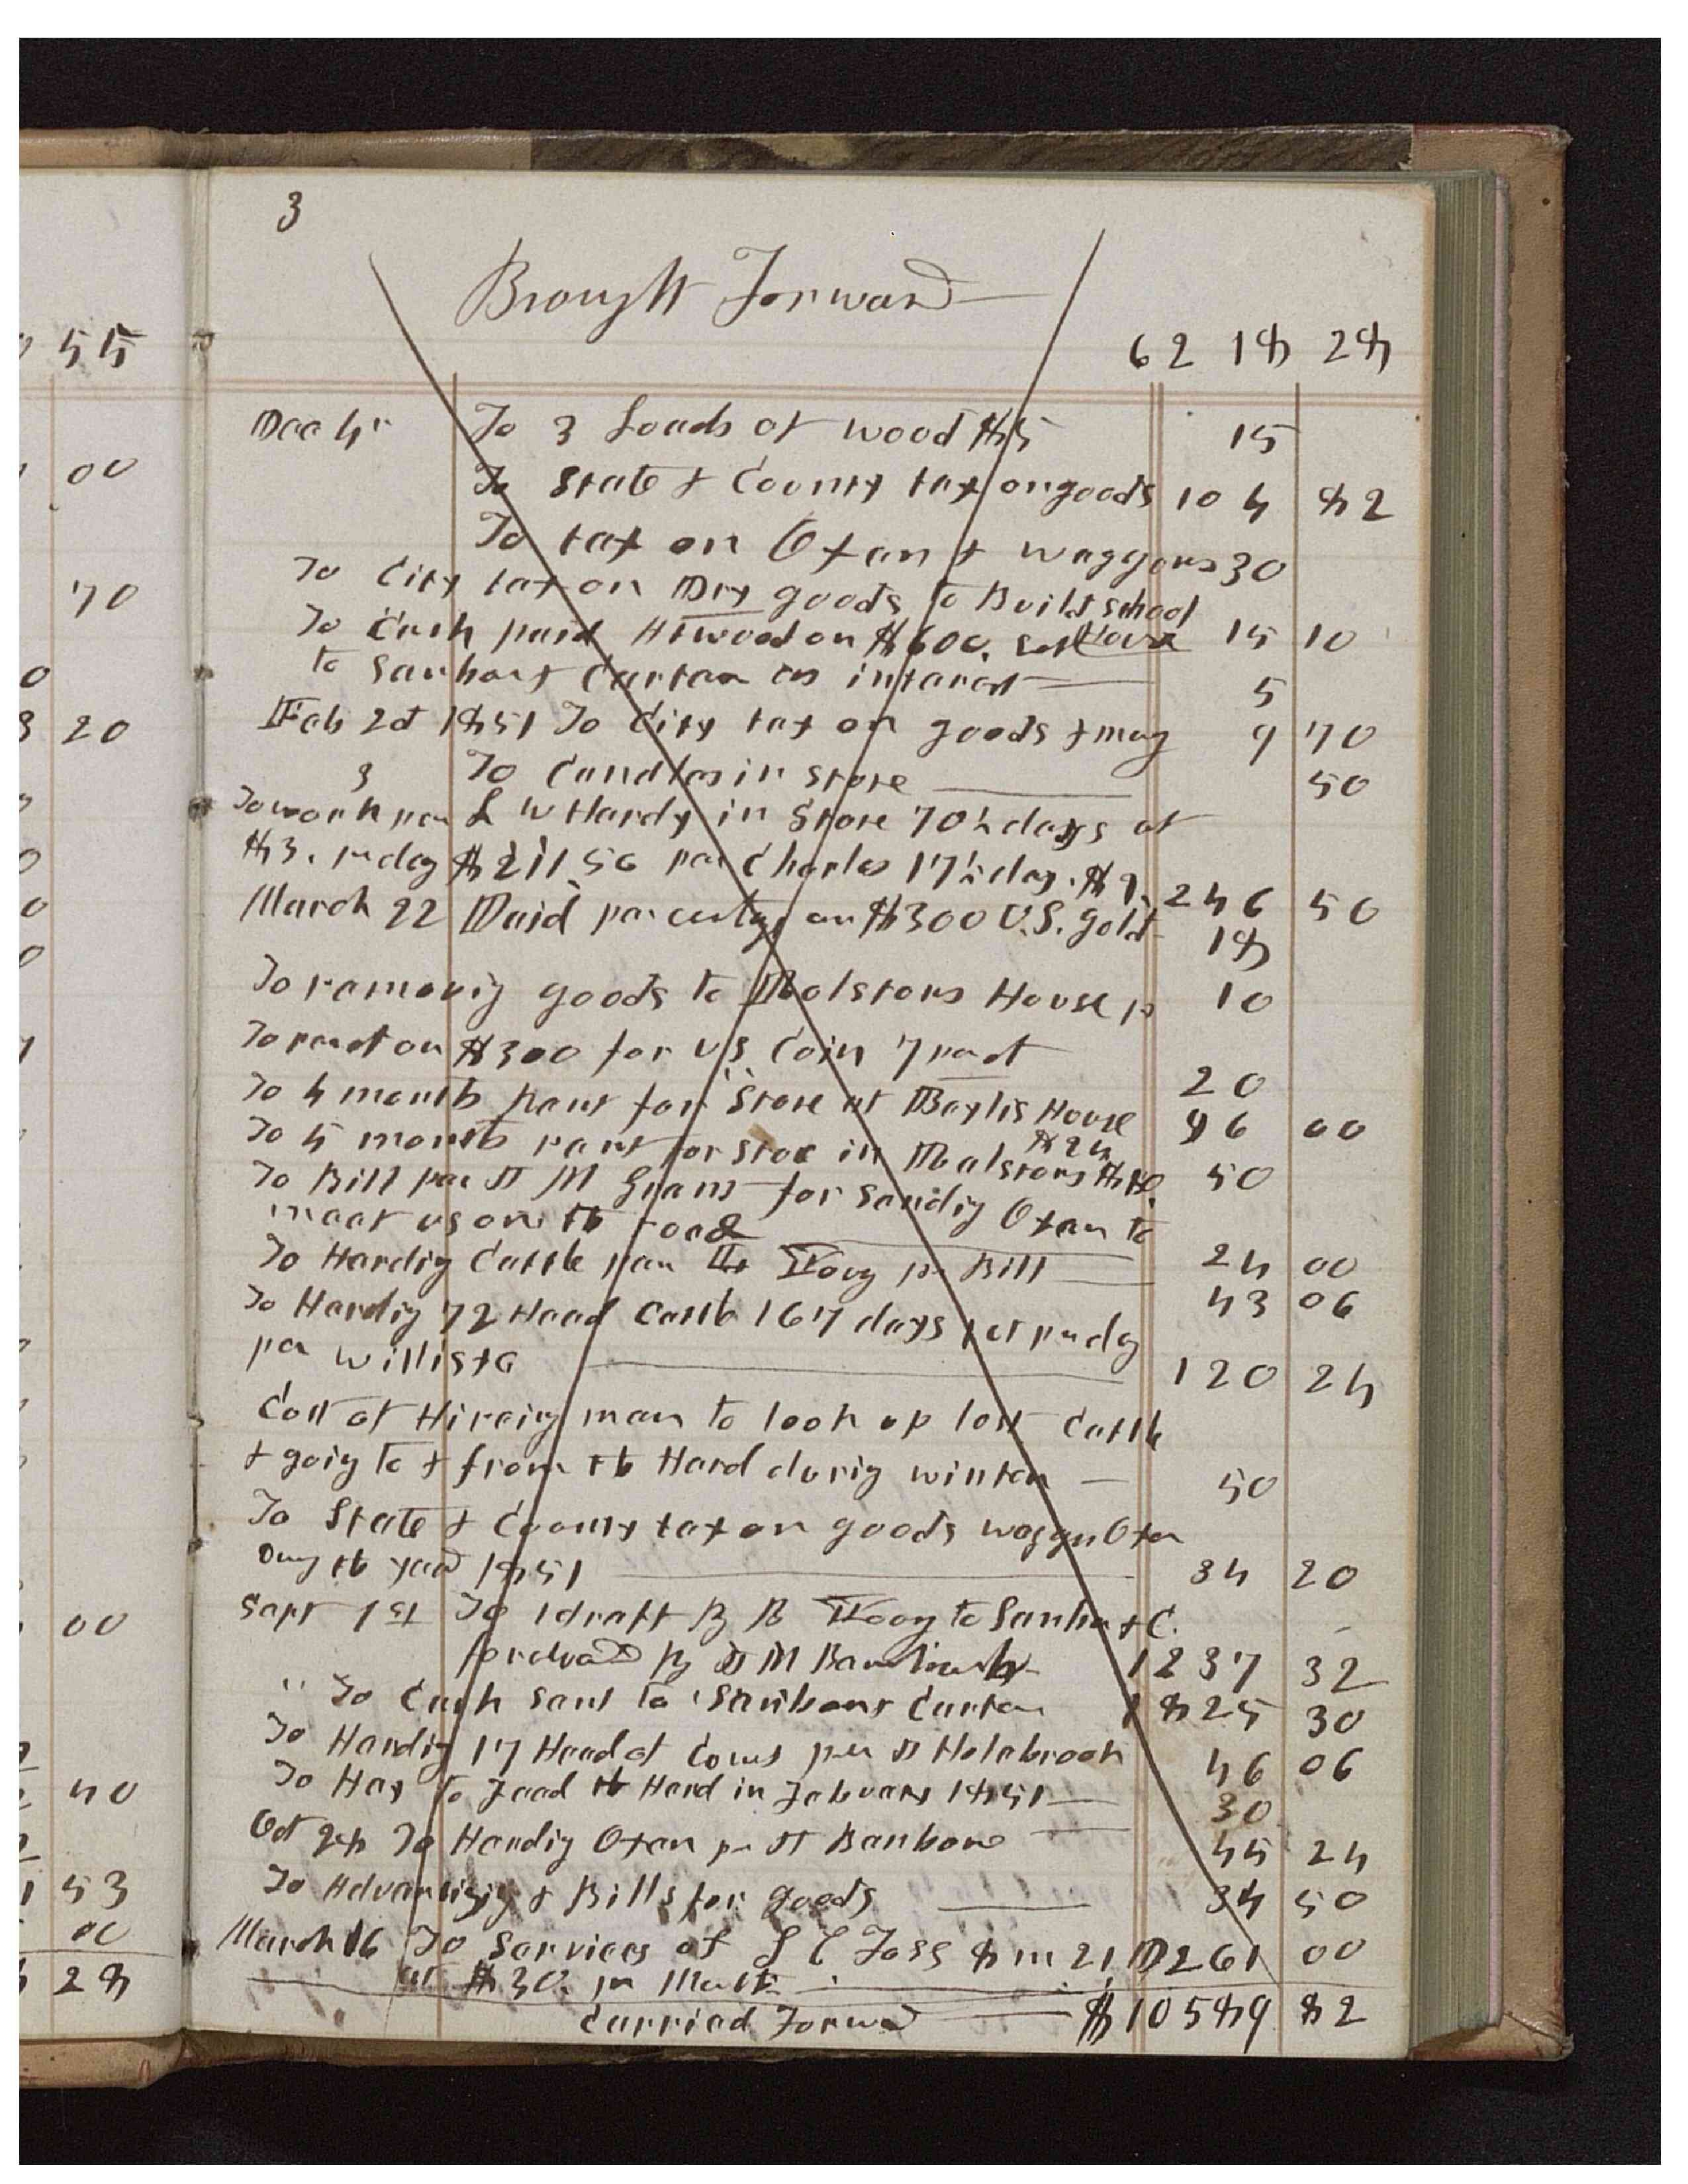 3
Brought Forward
55
62 18 28
Dec 4" To 3 Loads of wood $5 15
00
To State & County tax on goods 104 82
To tax on Oxan & waggons 30
To City tax on Dry goods to Build school
70
House 15 10
To Cash paid Atwood on $600.
to Sanborn & Carter as intarest 5
0
Feb 2d 1851 To City tax on goods & mug 9 70
3 20
3 To Candles in store 50
To work per L W Hardy in Store 70½ days at
$3. pr day $211.50 per Charles 17½ day. $2. 246 50
0
0
March 22 Paid per centage on $300 U.S. gold 18
0
To ramovig goods to Ralstons House 10
To paid on $300 for US Coin 7 parct 20
To 4 months Rant for Store at Baylis House
$24 96 00
To 5 months rant for Store in Ralstons $10. 50
To Bill per M Grant for sandig Oxan to
meat us on th road 24 00
To Hardig Cattle par Hovy pr Bill 43 06
To Hardig 72 Head Cattle 167 days 1 ct pr day
per Willis & Co 120 24
Cost of Hireing man to look up lost Cattle
& goig to & from th Hard durig wintar 50
To State & County tax on goods waggn Oxan
Dug th year 1851 34 20
Sapt 1st To 1 draft B B Hovy to Sanbn & C.
00
forelvad By M 1237 32
" To Cash Sant to Sanborn Cartar 1825 30
To Hardig 17 Head of Cows per Holabrook 46 06
To Hay to Feed th Herd in Febuary 1851 30
40
Oct 24 To Hardig Oxan pr Banbone 45 24
To Advartisig & Bills for goods 34 50
53
March 16 To Services of L C Foss 8 m 21 D 261 00
00
at $30. pr Month
28
Carried Forwd $10589 82